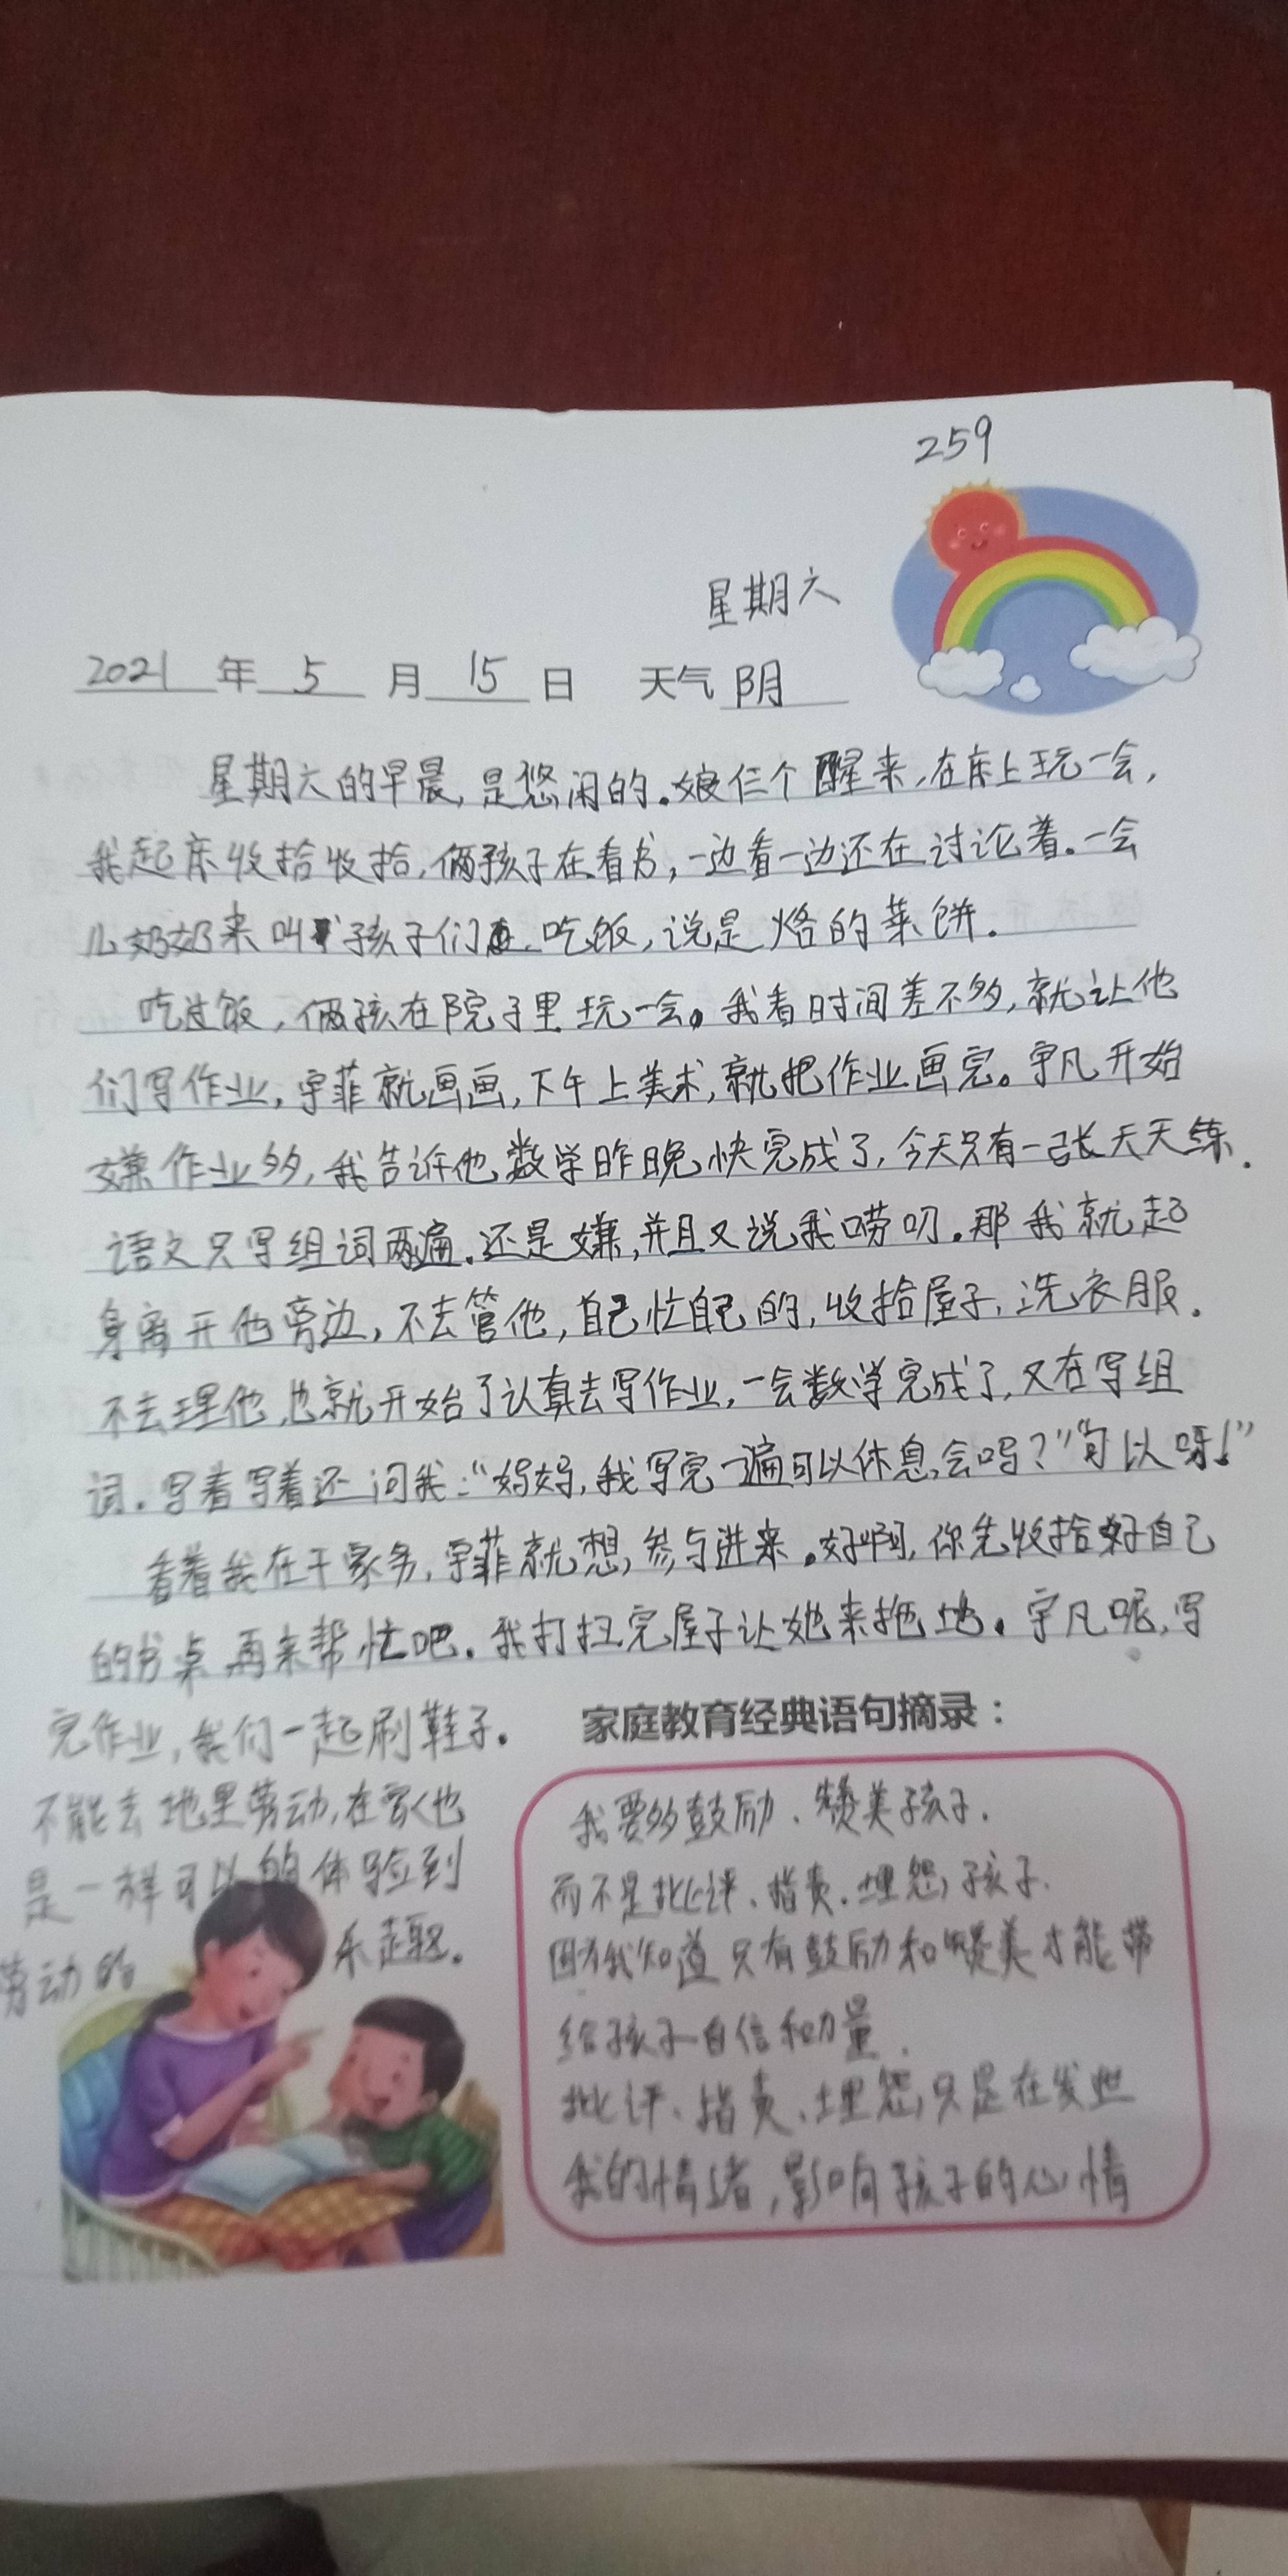 259
星期六
2021年5月15日 天气阴
星期六的早晨,是悠闲的。娘仨个醒来,在床上玩一会,
我起床收拾收拾,俩孩子在看书,一边看一边还在讨论着。一会
儿奶奶来叫孩子们吃饭,说是烙的菜饼.
吃过饭,俩孩在院子里玩一会。我看时间差不多,就让他
们写作业,宇菲就画画,下午上美术,就把作业画完。宇凡开始
嫌作业多,我告诉他数学昨晚快完成了,今天只有一张天天练.
语文只写组词两遍.还是嫌,并且又说我唠叨.那我就起
身离开他旁边,不去管他,自己忙自己的,收拾屋子,洗衣服.
不去理他,也就开始了认真去写作业,一会数学完成了,又在写组
词.写着写着还问我:“妈妈,我写完一遍可以休息会吗?”“可以呀!”
看着我在干家务,宇菲就想参与进来.好啊,你先收拾好自己
的书桌再来帮忙吧.我打扫完屋子让她来拖地.宇凡呢,写
完作业,我们一起刷鞋子.
不能去地里劳动,在家也
是一样可以的体验到
劳动的乐趣.
家庭教育经典语句摘录:
我要多鼓励、赞美孩子.
而不是批评、指责、埋怨孩子.
因为我知道只有鼓励和赞美才能带
给孩子自信和力量.
批评、指责、埋怨只是在发泄
我的情绪,影响孩子的心情